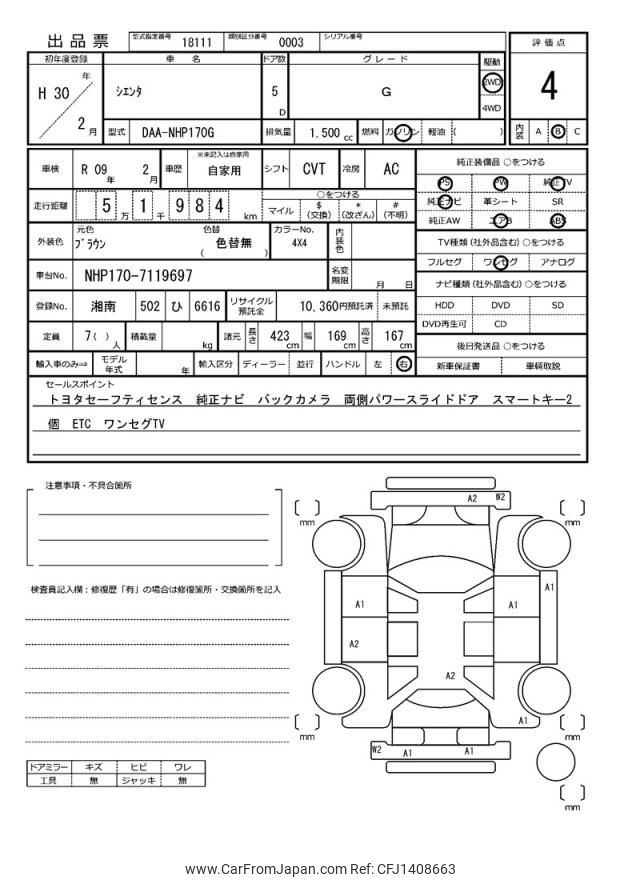 出品票
型式指定番号 18111 類別区分番号 0003 シリアル番号
評価点
4
内装 A B C
初年度登録 車名 ドア数 グレード 駆動
H 30 年 2 月
シエンタ
5 D
G
2WD
4WD
型式 DAA-NHP170G 排気量 1.500 cc 燃料 ガソリン 軽油 ( )
車検 R 09 年 2 月 車歴 ※未記入は自家用 自家用 シフト CVT 冷房 AC
走行距離 5 万 1 千 9 8 4 km
○をつける
マイル $ (交換) * (改ざん) # (不明)
外装色 元色 ブラウン 色替 ( 色替無 ) カラーNo. 4X4 内装色
車台No. NHP170-7119697 名変期限 月 日
登録No. 湘南 502 ひ 6616 リサイクル預託金 10,360円預託済 未預託
定員 7( ) 人 積載量 kg 諸元 長さ 423 cm 幅 169 cm 高さ 167 cm
輸入車のみ⇒ モデル年式 年 輸入区分 ディーラー 並行 ハンドル 左 右
純正装備品 ○をつける
PS PW 純正TV
純正ナビ 革シート SR
純正AW エアB ABS
TV種類 (社外品含む) ○をつける
フルセグ ワンセグ アナログ
ナビ種類 (社外品含む) ○をつける
HDD DVD SD
DVD再生可 CD
後日発送品 ○をつける
新車保証書 車輌取説
セールスポイント
トヨタセーフティセンス 純正ナビ バックカメラ 両側パワースライドドア スマートキー2
個 ETC ワンセグTV
注意事項・不具合箇所
検査員記入欄：修復歴「有」の場合は修復箇所・交換箇所を記入
ドアミラー キズ ヒビ ワレ
工具 無 ジャッキ 無
A2 W2
[ ] mm
[ ] mm
A1 A1 A1
A2
A2
A1
[ ] mm
[ ] mm
W2 A1 A1
[ ] mm
www.CarFromJapan.com Ref: CFJ1408663